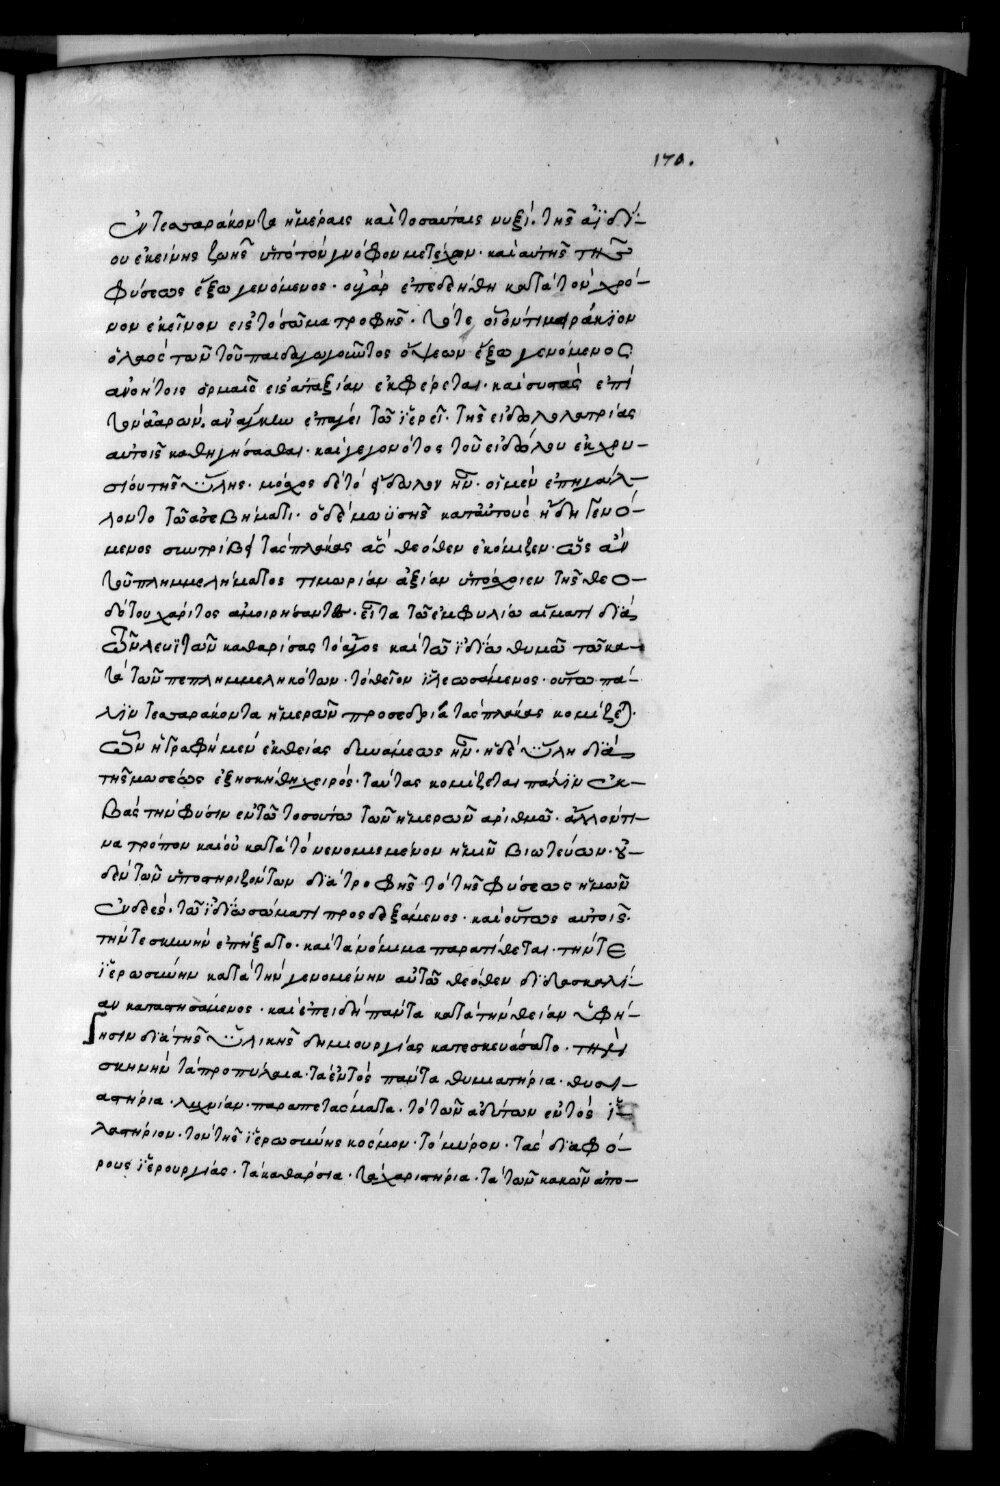 170.
ἐν τεσσαράκοντα ἡμέραις καὶ τοσαύταις νυξί. τῆς ἀϊδί-
ου ἐκείνης ζωῆς ὑπὸ τὸν γνόφον μετέχων. καὶ αὐτῆς τῆς
φύσεως ἔξω γενόμενος. οὐ γὰρ ἐπεδεήθη κατὰ τὸν χρό-
νον ἐκεῖνον εἰς τὸ σῶμα τροφῆς. τότε οἷόν τι μειράκιον
ὁ λαὸς τῶν τοῦ παιδαγωγοῦντος ὄψεων ἔξω γενόμενος
ἀνοήτοις ὁρμαῖς εἰς ἀταξίαν ἐκφέρεται. καὶ συστὰς ἐπὶ
τὸν ἀαρών. ἀνάγκην ἐπάγει τῷ ἱερεῖ. τῆς εἰδωλολατρίας
αὐτοῖς καθηγήσασθαι. καὶ γεγονότος τοῦ εἰδώλου ἐκ χρυ-
σίου τῆς ὕλης. μόσχος δὲ τὸ εἴδωλον ἦν. οἱ μὲν ἐπηγάλ-
λοντο τῷ ἀσεβήματι. ὁ δὲ μωϋσῆς κατ' αὐτοὺς ἤδη γενό-
μενος συντρίβει τὰς πλάκας ἃς θεόθεν ἐκόμιζεν. ὡς ἂν
τοῦ πλημμελήματος τιμωρίαν ἀξίαν ὑπόσχοιεν τῆς θεο-
δότου χάριτος ἀμοιρήσαντες. εἶτα τῷ ἐμφυλίῳ αἵματι διὰ
τῶν λευϊτῶν καθαρίσας τὸ ἄγος καὶ τῷ ἰδίῳ θυμῷ τῷ κα-
τὰ τῶν πεπλημμεληκότων. τὸ θεῖον ἱλεωσάμενος. οὕτω πά-
λιν τεσσαράκοντα ἡμερῶν προσεδρίᾳ τὰς πλάκας κομίζεται.
ὧν ἡ γραφὴ μὲν ἐκ θείας δυνάμεως ἦν. ἡ δὲ ὕλη διὰ
τῆς μωσέως ἐξησκήθη χειρός. ταύτας κομίζεται πάλιν ἐκ-
βὰς τὴν φύσιν ἐν τῷ τοσούτῳ τῶν ἡμερῶν ἀριθμῷ. ἄλλόν τι-
να τρόπον καὶ οὐ κατὰ τὸ νενομισμένον ἡμῖν βιωτεύων. οὐ-
δὲν τῶν ὑποστηριζόντων διὰ τροφῆς τὸ τῆς φύσεως ἡμῶν
ἐνδεές. τῷ ἰδίῳ σώματι προσδεξάμενος. καὶ οὕτως αὐτοῖς.
τήν τε σκηνὴν ἐπήξατο. καὶ τὰ νόμιμα παρατίθεται. τήν τε
ἱερωσύνην κατὰ τὴν γενομένην αὐτῷ θεόθεν διδασκαλί-
αν καταστησάμενος. καὶ ἐπειδὴ πάντα κατὰ τὴν θείαν ὑφή-
γησιν διὰ τῆς ὑλικῆς δημιουργίας κατεσκευάσατο. τὴν
σκηνὴν τὰ προπύλαια. τὰ ἐντὸς πάντα θυμιατήρια. θυσι-
αστήρια. λυχνίαν. παραπετάσματα. τὸ τῶν ἀδύτων ἐντὸς ἱ-
λαστήριον. τὸν τῆς ἱερωσύνης κόσμον. τὸ μύρον. τὰς διαφό-
ρους ἱερουργίας. τὰ καθάρσια. τὰ χαριστήρια. τὰ τῶν κακῶν ἀπο-